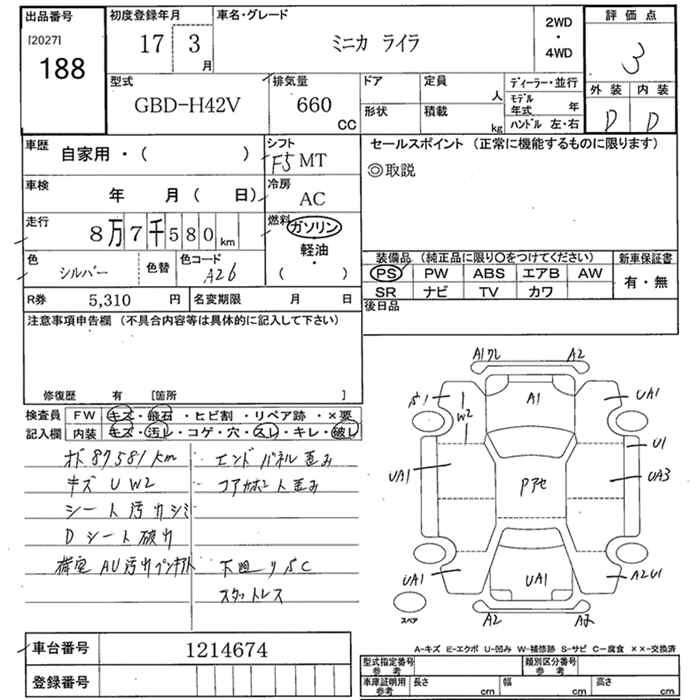 出品番号
[2027]
188
初度登録年月
17 3
月
車名・グレード
ミニカ ライラ
2WD
・
4WD
評価点
3
外装 内装
D D
型式
GBD-H42V
排気量
660
CC
ドア
定員
人
形状
積載
kg
ディーラー・並行
モデル
年式 年
ハンドル 左・右
車歴
自家用・( )
シフト
F5 MT
車検
年 月 ( 日)
冷房
AC
走行
8万7千580 km
燃料
ガソリン
軽油
・
( )
色
シルバー
色替
色コード
A26
R券 5,310 円
名変期限 月 日
セールスポイント (正常に機能するものに限ります)
◎取説
装備品 (純正品に限り○をつけてください)
新車保証書
PS PW ABS エアB AW
有・無
SR ナビ TV カワ
後日品
注意事項申告欄 (不具合内容等は具体的に記入して下さい)
修復歴 有 [箇所 ]
検査員
記入欄
FW キズ・飛石・ヒビ割・リペア跡・×要
内装 キズ・汚レ・コゲ・穴・スレ・キレ・破レ
87581km
エンドパネル歪み
キズ U W2
コアサポート歪み
シート汚れシミ
Dシート破れ
荷室 AU汚れ
下回りSC
スタットレス
A1ワレ A2
A1
S1
W2
UA1
U1
UA1
UA3
Pアセ
UA1
UA1
A2U1
A2
A2
スペア
A-キズ E-エクボ U-凹み W-補修跡 S-サビ C-腐食 ××-交換済
車台番号 1214674
登録番号
型式指定番号
参考
類別区分番号
参考
車庫証明用
参考
長さ cm
幅 cm
高さ cm